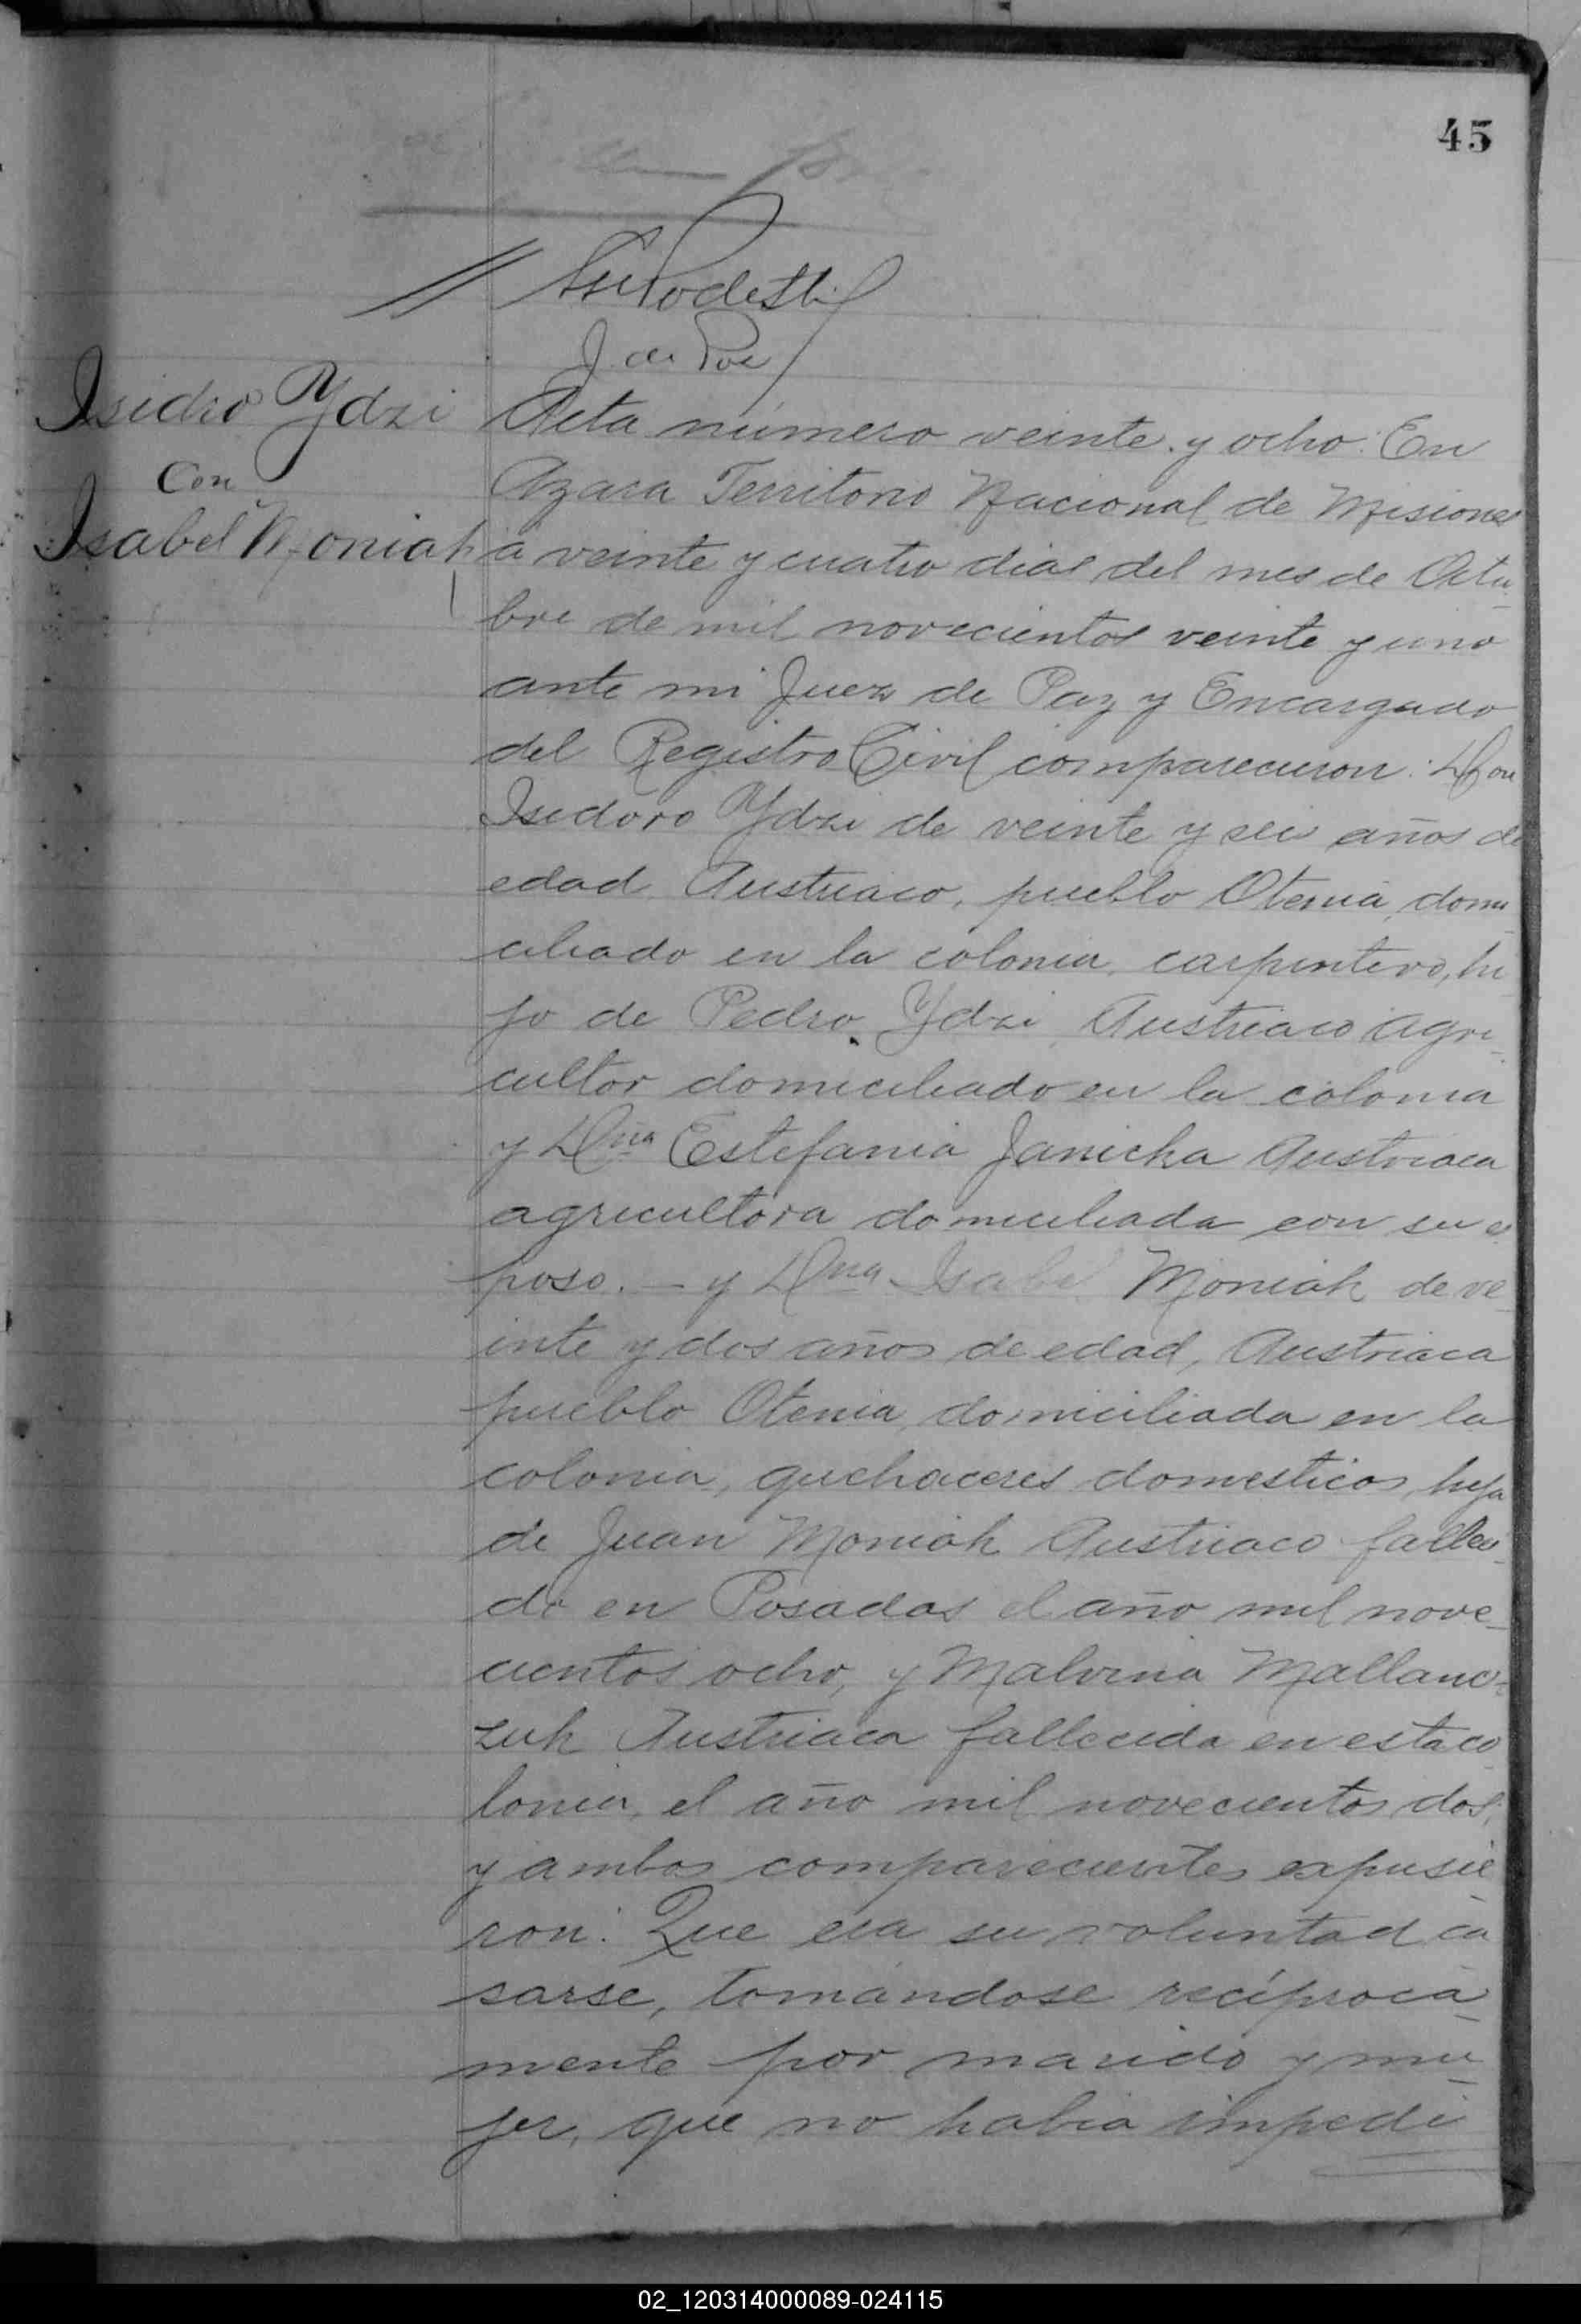 45
J. de Paz
Isidro Ydzi
Con
Isabel Moniak
Acta número veinte y ocho: En
Azara Territorio Nacional de Misiones
á veinte y cuatro dias del mes de Octu-
bre de mil novecientos veinte y uno
ante mi Juez de Paz y Encargado
del Registro Civil comparecieron: Don
Isidoro Ydzi de veinte y seis años de
edad, Austriaco, pueblo Otenia, domi-
ciliado en la colonia, carpintero, hi-
jo de Pedro Ydzi, Austriaco agri-
cultor domiciliado en la colonia
y Dña Estefania Janicka Austriaca
agricultora domiciliada con su es
poso. — y Dña Isabel Moniak de ve-
inte y dos años de edad, Austriaca
pueblo Otenia, domiciliada en la
colonia, quehaceres domesticos, hija
de Juan Moniak Austriaco falleci-
do en Posadas el año mil nove-
cientos ocho, y Malvina Mallanc-
zuk Austriaca fallecida en esta co
lonia, el año mil novecientos dos,
y ambos comparecientes expusie-
ron: Que era su voluntad ca
sarse, tomándose recíproca-
mente por marido y mu-
jer, que no habia impedi
02_120314000089-024115